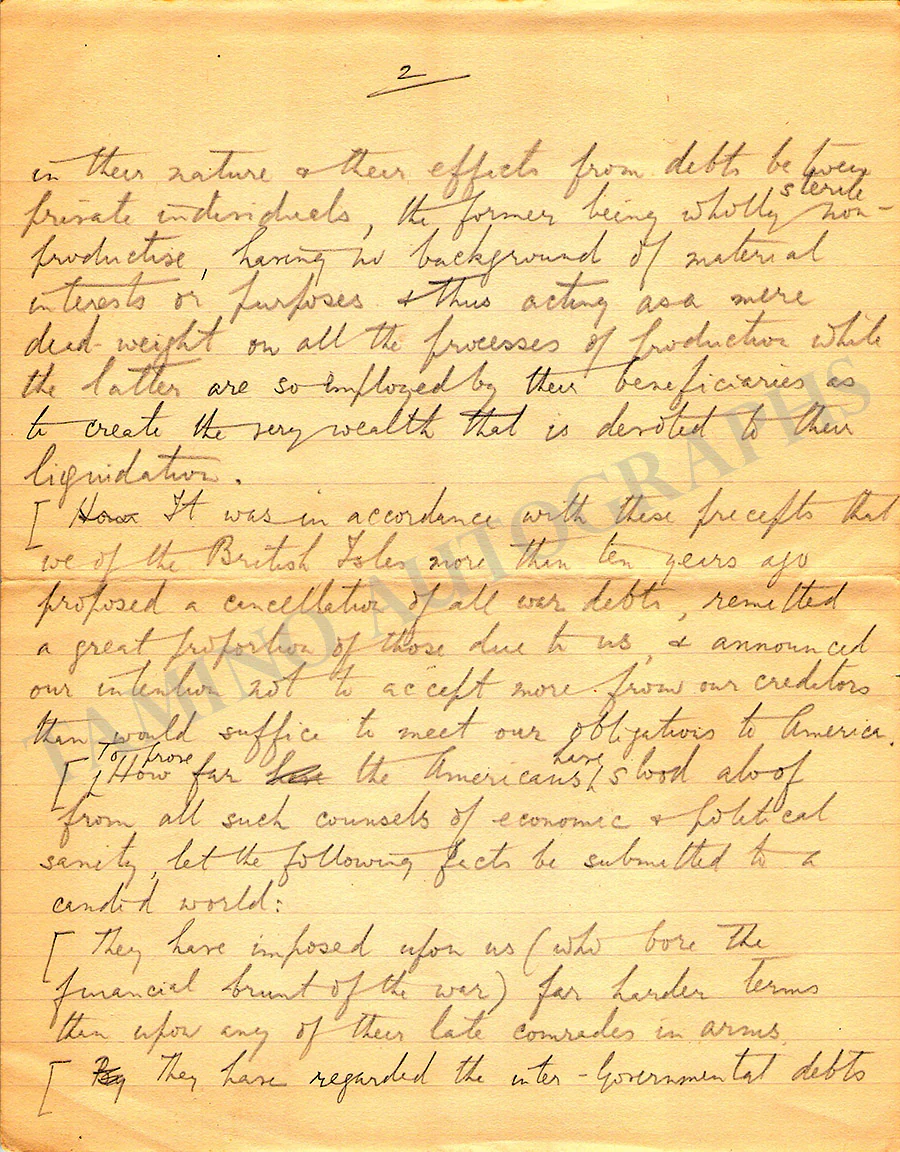 2
in their nature & their effects from debts between
private individuals, the former being wholly sterile non-
productive, having no background of material
interests or purposes & thus acting as a mere
dead-weight on all the processes of production while
the latter are so employed by their beneficiaries as
to create the very wealth that is devoted to their
liquidation.
[ How It was in accordance with these precepts that
we of the British Isles more than ten years ago
proposed a cancellation of all war debts, remitted
a great proportion of those due to us, & announced
our intention not to accept more from our creditors
than would suffice to meet our obligations to America.
[ To prove How far have the Americans have stood aloof
from all such counsels of economic & political
sanity, let the following facts be submitted to a
candid world:
[ They have imposed upon us (who bore the
financial brunt of the war) far harder terms
than upon any of their late comrades in arms
[ By They have regarded the inter-Governmental debts
TAMINO AUTOGRAPHS